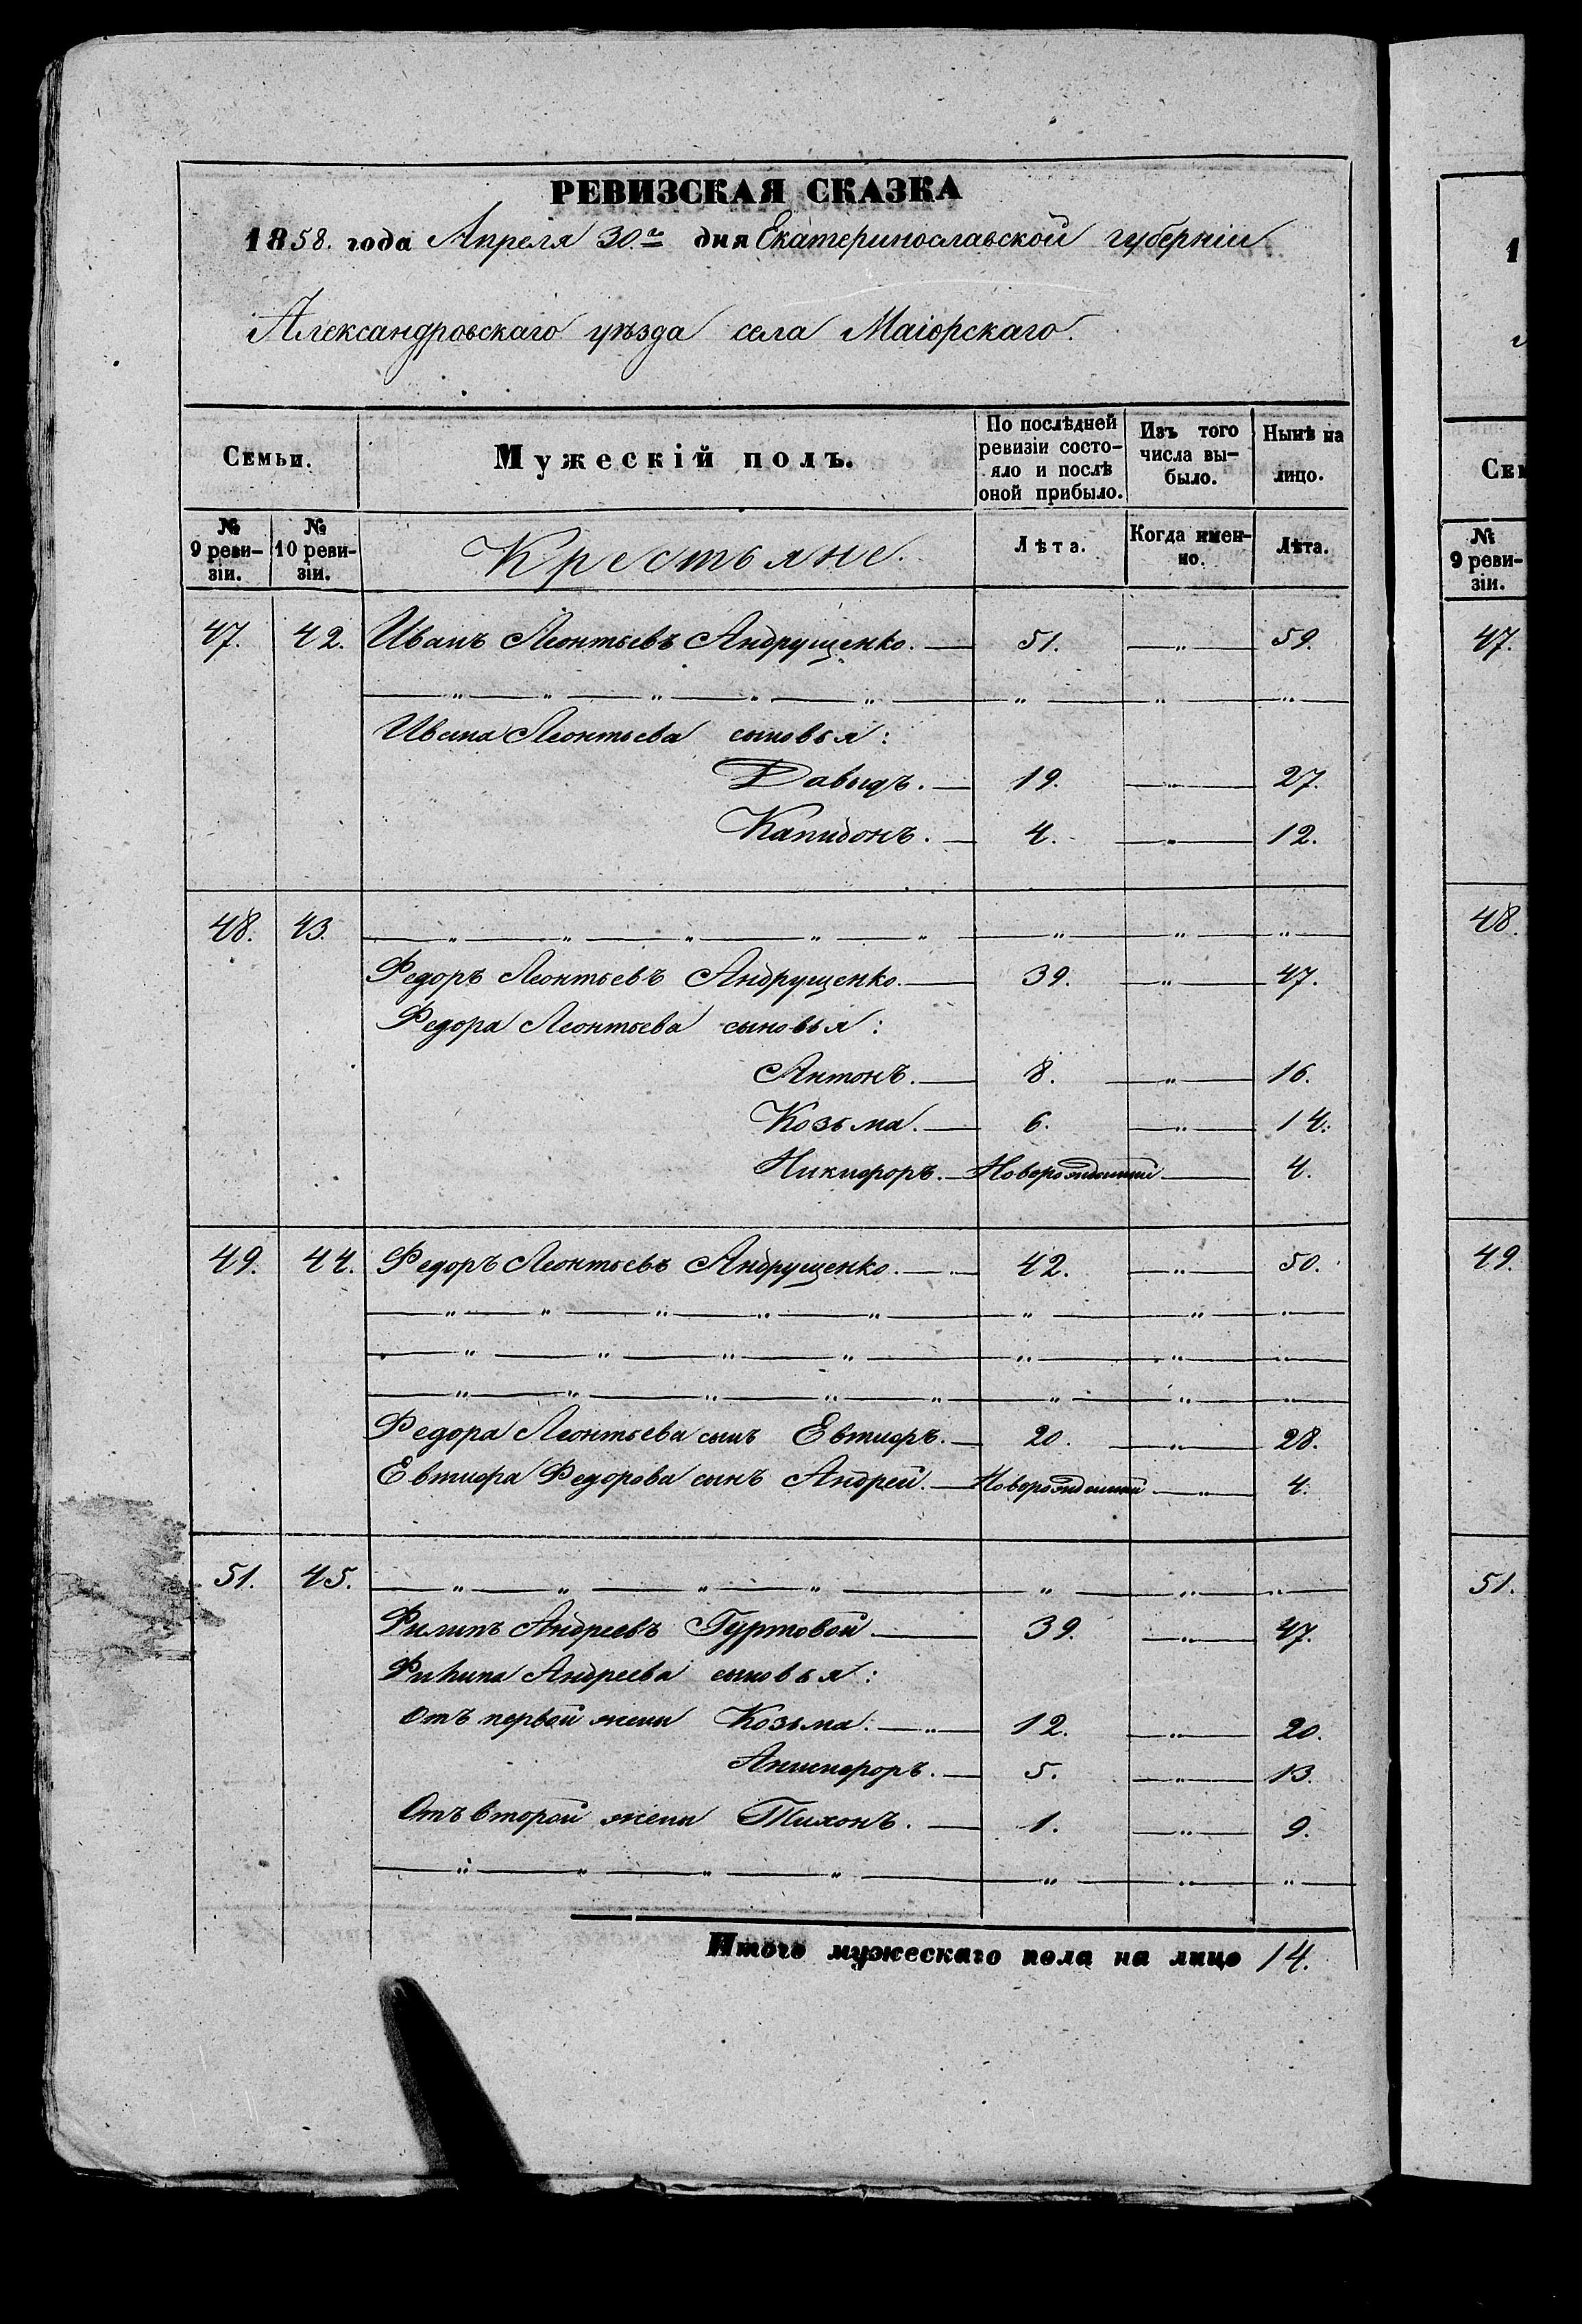 РЕВИЗСКАЯ СКАЗКА
1858. года Апреля 30.го дня Екатеринославской губерніи
Александровскаго уѣзда села Маіорскаго.
Семьи. Мужескій полъ. По послѣдней ревизіи состояло и послѣ оной прибыло. Изъ того числа выбыло. Нынѣ на лицо.
№ 9 ревизіи. № 10 ревизіи. Крестьяне. Лѣта. Когда именно. Лѣта.
47. 42. Иванъ Леонтьевъ Андрущенко. 51. — „ — 59.
— „ — „ — „ — „ — „ — „ — „ — „ —
Ивана Леонтьева сыновья:
Давыдъ. — 19. — „ — 27.
Капидонъ. — 4. — „ — 12.
48. 43. — „ — „ — „ — „ — „ — „ — „ — „ —
Федоръ Леонтьевъ Андрущенко. — 39. — „ — 47.
Федора Леонтьева сыновья:
Антонъ. — 8. — „ — 16.
Козьма. — 6. — „ — 14.
Никифоръ. — Новорожденный — 4.
49. 44. Федоръ Леонтьевъ Андрущенко. — 42. — „ — 50.
— „ — „ — „ — „ — „ — „ — „ — „ —
— „ — „ — „ — „ — „ — „ — „ —
— „ — „ — „ — „ — „ — „ — „ — „ —
Федора Леонтьева сынъ Евтифъ. — 20. — „ — 28.
Евтифа Федорова сынъ Андрей. — Новорожденный — „ — 4.
51. 45. — „ — „ — „ — „ — „ — „ — „ —
Филипъ Андреевъ Гуртовой — 39. — „ — 47.
Филипа Андреева сыновья:
Отъ первой жены Козьма. — „ — 12. — „ — 20.
Аниифоръ. — 5. — „ — 13.
Отъ второй жены Тихонъ. — 1. — „ — 9.
— „ — „ — „ — „ — „ — „ — „ —
Итого мужескаго пола на лицо 14.
1
Сем
№ 9 ревизіи.
47.
48.
49.
51.